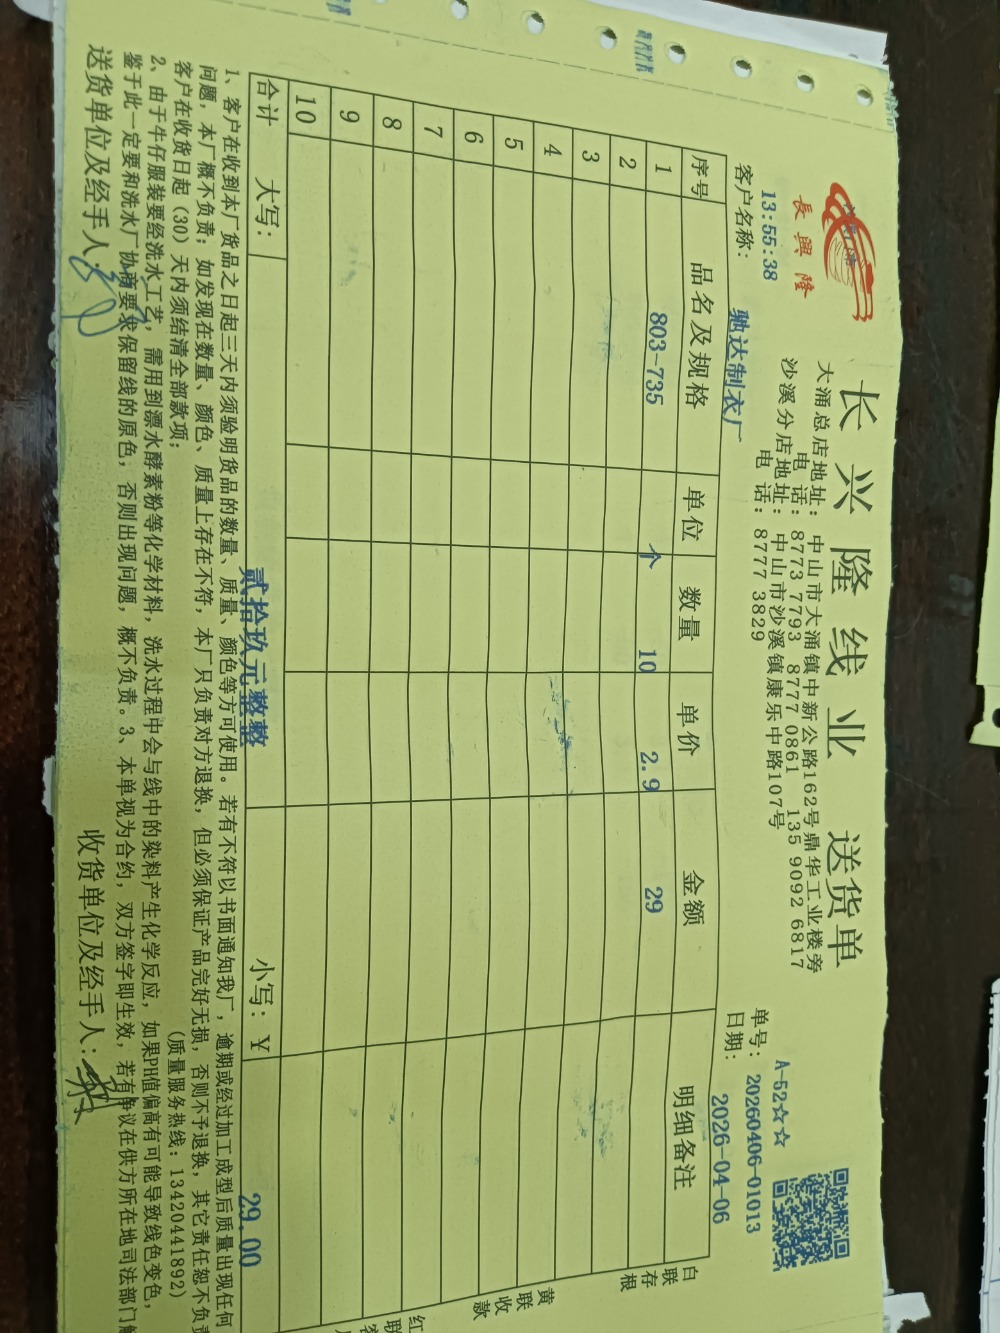 長興隆
长兴隆线业 送货单
大涌总店地址: 中山市大涌镇中新公路162号鼎华工业楼旁
电 话: 8773 7793 8777 0861 135 9092 6817
沙溪分店地址: 中山市沙溪镇康乐中路107号
电 话: 8777 3829
A-52☆☆
13:55:38
单号: 20260406-01013
客户名称: 驰达制衣厂
日期: 2026-04-06
序号 品名及规格 单位 数量 单价 金额 明细备注
1 803-735 个 10 2.9 29
2
3
4
5
6
7
8
9
10
合计 大写: 贰拾玖元整整 小写: ¥ 29.00
1、客户在收到本厂货品之日起三天内须验明货品的数量、质量、颜色等方可使用。若有不符以书面通知我厂，逾期或经过加工成型后质量出现任何
问题，本厂概不负责；如发现在数量、颜色、质量上存在不符，本厂只负责对方退换，但必须保证产品完好无损，否则不予退换，其它责任恕不负责
客户在收货日起（30）天内须结清全部款项； (质量服务热线: 13420441892)
2、由于牛仔服装要经洗水工艺，需用到漂水酵素粉等化学材料，洗水过程中会与线中的染料产生化学反应，如果PH值偏高有可能导致线色变色，
鉴于此一定要和洗水厂协商要求保留线的原色，否则出现问题，概不负责。3、本单视为合约，双方签字即生效，若有争议在供方所在地司法部门
送货单位及经手人: 收货单位及经手人:
白联存根
黄联收款
红联